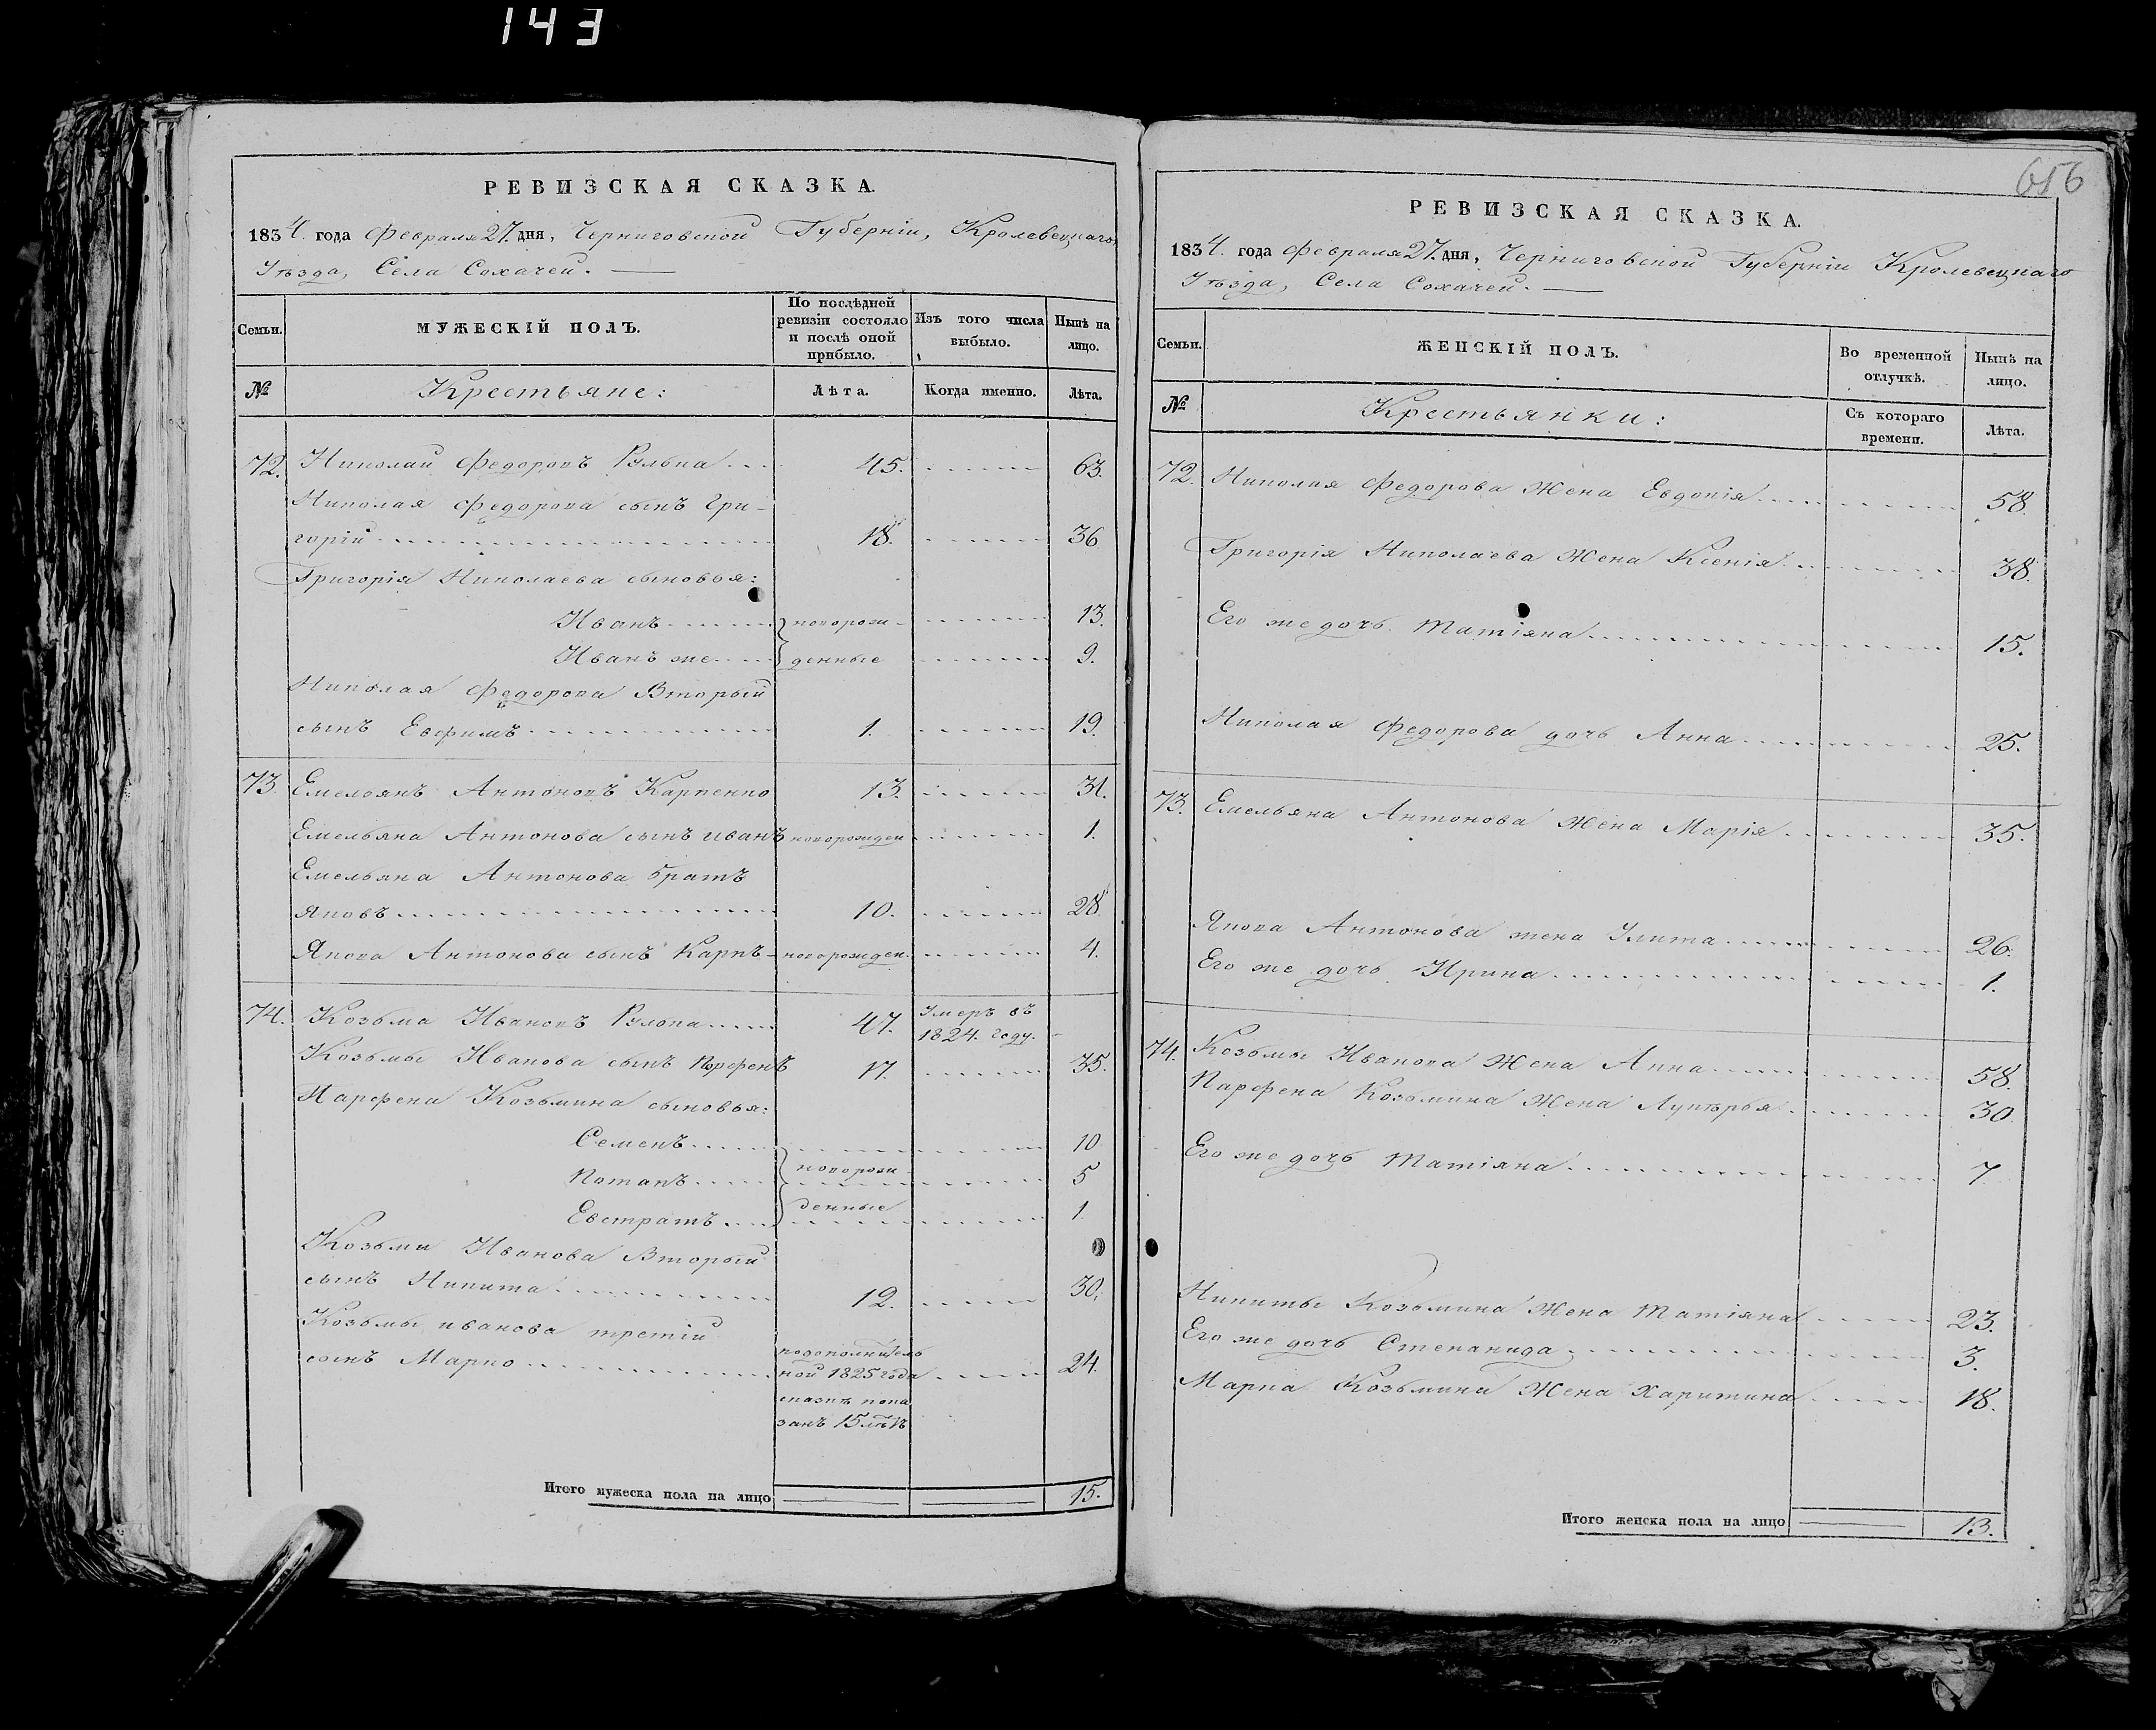 143
РЕВИЗСКАЯ СКАЗКА.
1834. года Февраля 27. дня, Черниговской Губерніи, Кролевецкаго
Уѣзда, Села Сохачей.
Семьи.
МУЖЕСКІЙ ПОЛЪ.
По послѣдней
ревизіи состояло
и послѣ оной
прибыло.
Изъ того числа
выбыло.
Нынѣ на
лицо.
№
Крестьяне:
Лѣта.
Когда именно.
Лѣта.
72. Николай Федоровъ 45. 63.
Николая Федорова сынъ Гри-
горій 18. 36
Григорія Николаева сыновья:
Иванъ новорож- 13.
Иванъ же денные 9.
Николая Федорова Вторый
сынъ Евфимъ 1. 19.
73. Емельянъ Антоновъ Карпенко 13. 31.
Емельяна Антонова сынъ Иванъ новорожден 1.
Емельяна Антонова братъ
Яковъ 10. 28
Якова Антонова сынъ Карпъ новорожден. 4.
74. Козьма Ивановъ 47. Умеръ въ
1824. году.
Козьмы Иванова сынъ Парфенъ 17. 35.
Парфена Козьмина сыновья:
Семенъ 10
Потапъ новорож- 5
Евстратъ денные 1
Козьмы Иванова Вторый
сынъ Никита 12. 30.
Козьмы Иванова третій
сынъ Марко подополнитель
ной 1825 года 24.
сказкѣ пока
занъ 15 лѣтъ
Итого мужеска пола на лицо 15.
656
РЕВИЗСКАЯ СКАЗКА.
1834. года Февраля 27. дня, Черниговской Губерніи Кролевецкаго
Уѣзда, Села Сохачей.
Семьи.
ЖЕНСКІЙ ПОЛЪ.
Во временной
отлучкѣ.
Нынѣ на
лицо.
№
Крестьянки:
Съ котораго
времени.
Лѣта.
72. Николая Федорова Жена Евдокія 58.
Григорія Николаева Жена Ксенія 38.
Его же дочь Татіяна 15.
Николая Федорова дочь Анна 25.
73. Емельяна Антонова Жена Марія 35.
Якова Антонова жена Улита 26.
Его же дочь Ирина 1.
74. Козьмы Иванова Жена Анна 58.
Парфена Козьмина Жена Лукѣрья 30
Его же дочь Татіяна 7
Никиты Козьмина Жена Татіяна 23.
Его же дочь Степанида 3.
Марка Козьмина Жена Харитина 18.
Итого женска пола на лицо 13.